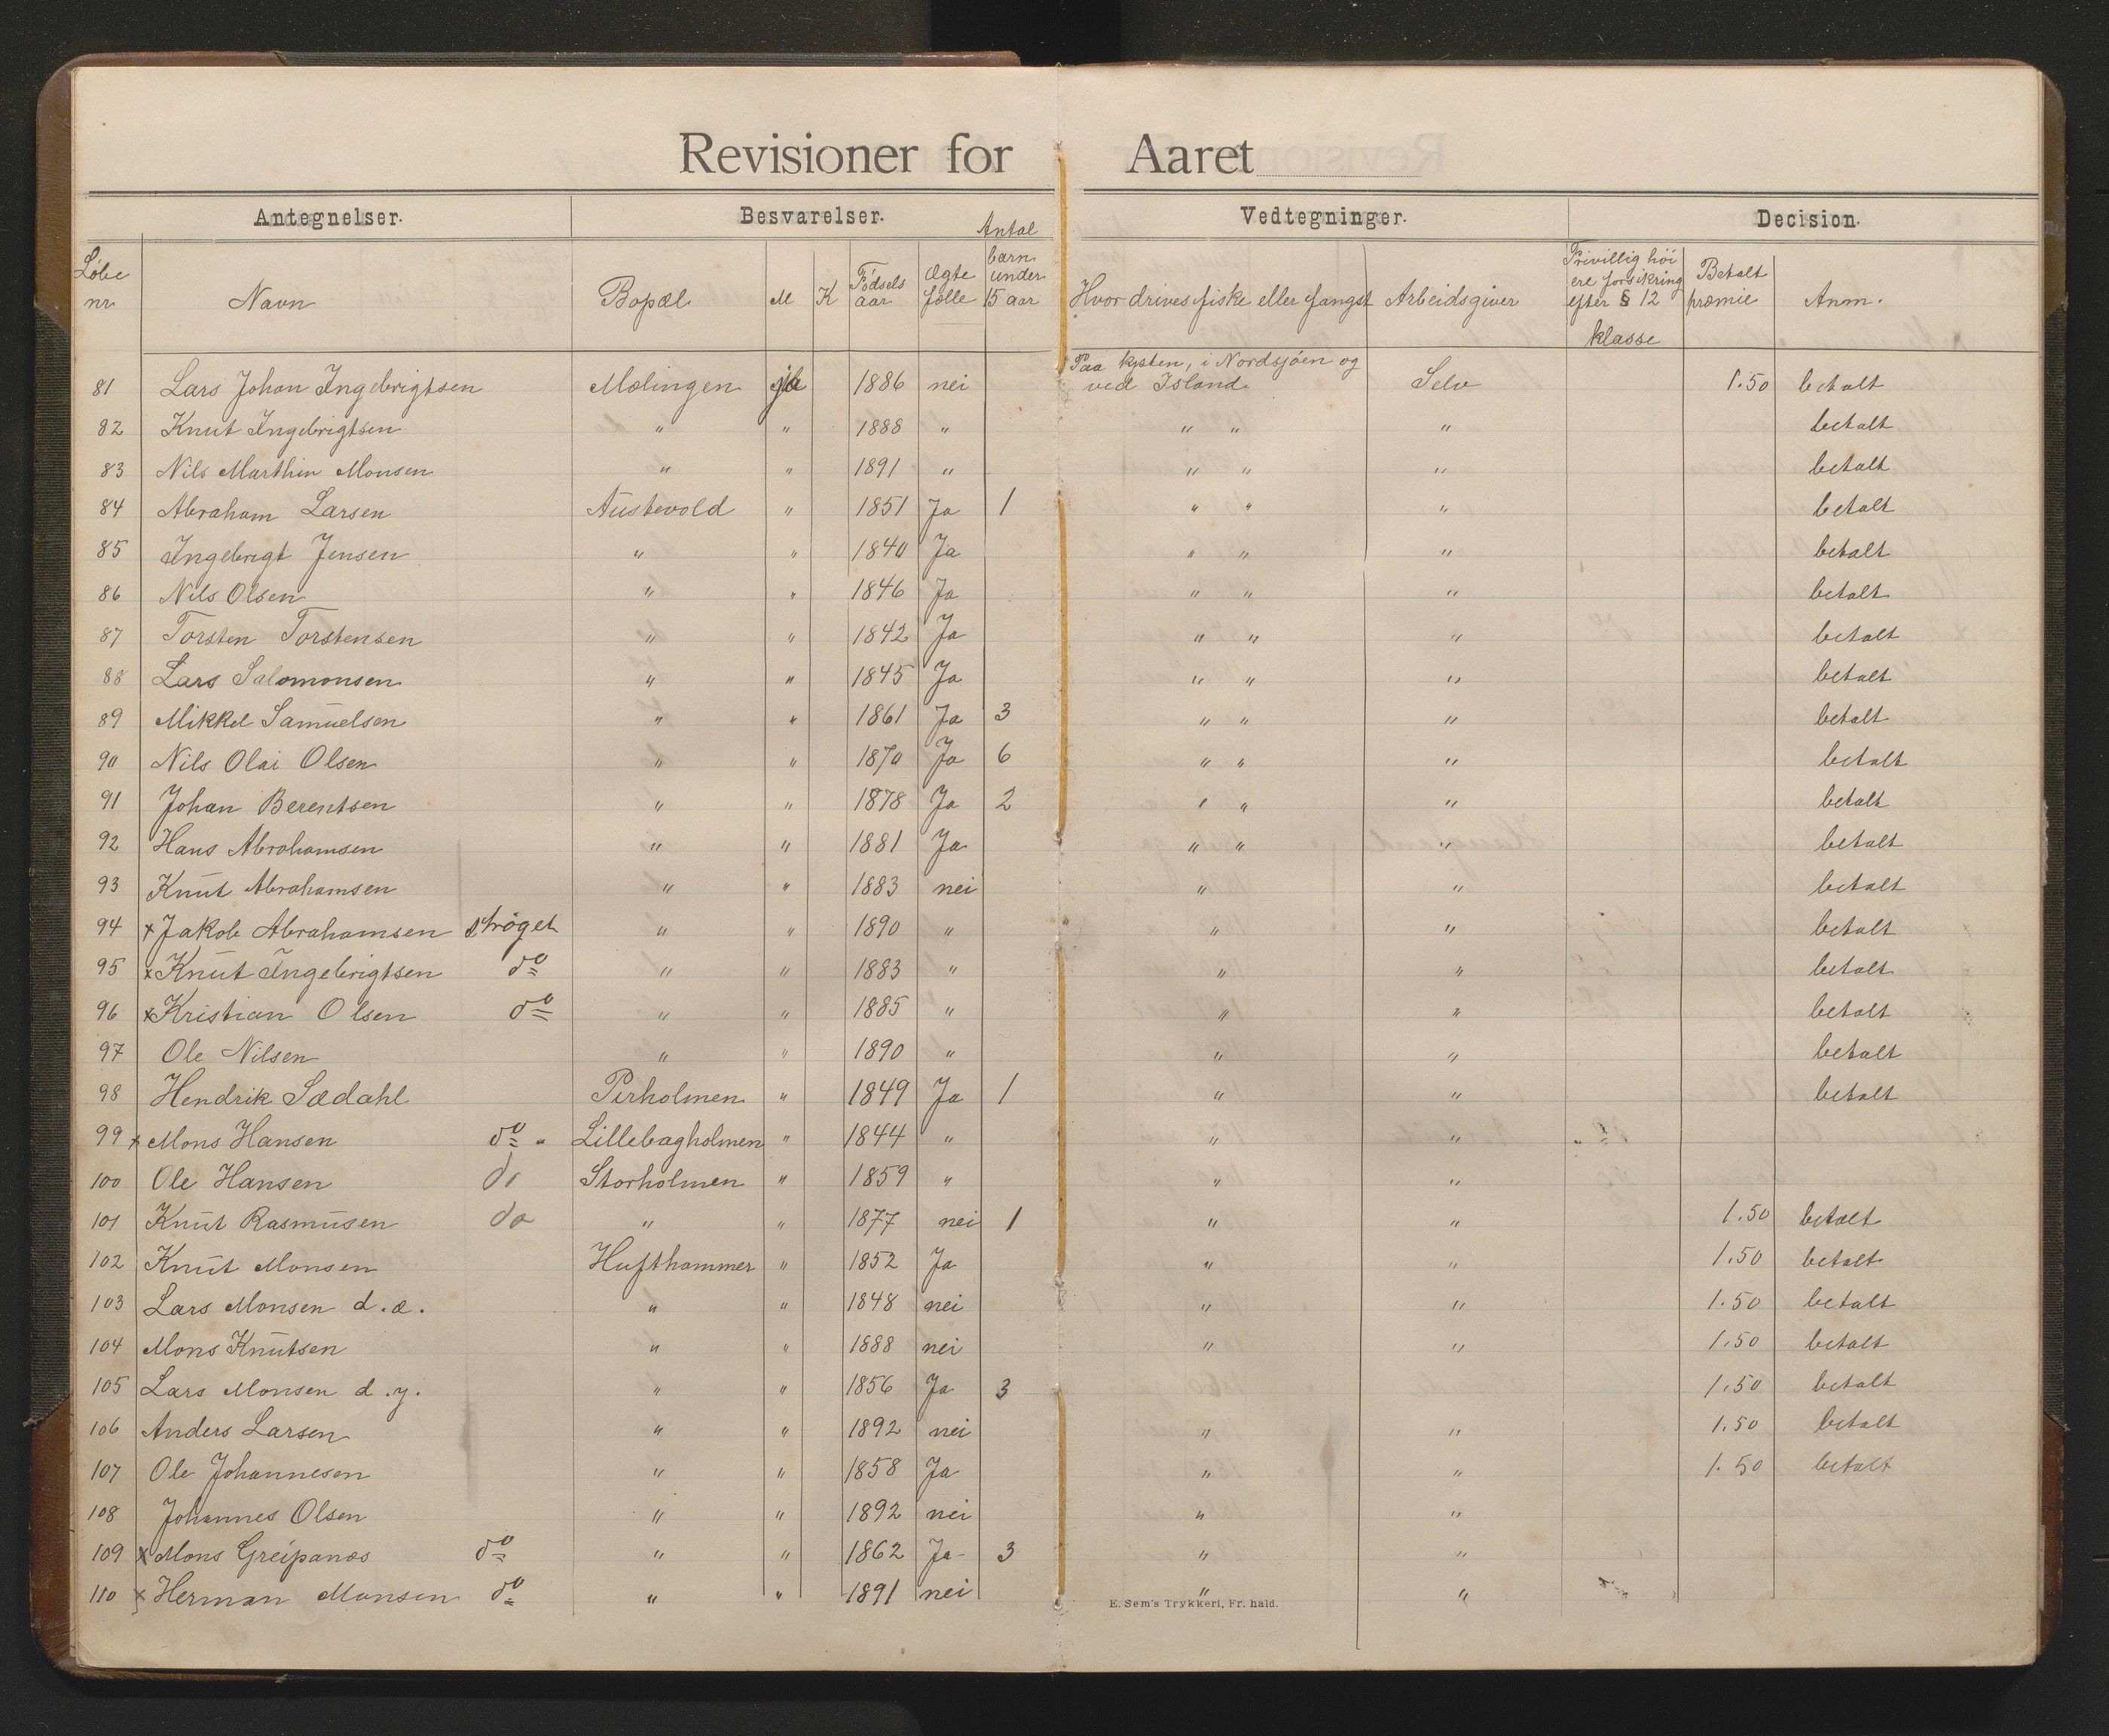 Revisioner for Aaret
Antegnelser. Besvarelser. Vedtegninger. Decision.
Løbe nr. Navn Bopæl M K Fødsels aar Ægte fælle Antal barn under 15 aar Hvor drives fiske eller fangst Arbeidsgiver Frivillig høi ere forsikring efter § 12 klasse Betalt præmie Anm.
81 Lars Johan Ingebrigtsen Mælingen ja 1886 nei Paa kysten, i Nordsjøen og ved Island Selv 1.50 betalt
82 Knut Ingebrigtsen " " 1888 " " " " betalt
83 Nils Marthin Monsen " " 1891 " " " " betalt
84 Abraham Larsen Austevold " 1851 Ja 1 " " " betalt
85 Ingebrigt Jensen " " 1840 Ja " " " betalt
86 Nils Olsen " " 1846 Ja " " " betalt
87 Torsten Torstensen " " 1842 Ja " " " betalt
88 Lars Salomonsen " " 1845 Ja " " " betalt
89 Mikkel Samuelsen " " 1861 Ja 3 " " " betalt
90 Nils Olai Olsen " " 1870 Ja 6 " " " betalt
91 Johan Berentsen " " 1878 Ja 2 " " " betalt
92 Hans Abrahamsen " " 1881 Ja " " " betalt
93 Knut Abrahamsen " " 1883 nei " " betalt
94 x Jakob Abrahamsen strøget " " 1890 " " " betalt
95 x Knut Ingebrigtsen do " " 1883 " " " betalt
96 x Kristian Olsen do " " 1885 " " " betalt
97 Ole Nilsen " " 1890 " " " betalt
98 Hendrik Sædahl Pirholmen " 1849 Ja 1 " " betalt
99 x Mons Hansen do " Lillebagholmen " 1844 " " "
100 Ole Hansen do Storholmen " 1859 " " "
101 Knut Rasmusen do " " 1877 nei 1 " " 1.50 betalt
102 Knut Monsen Hufthammer " 1852 Ja " " 1.50 betalt
103 Lars Monsen d.æ. " " 1848 nei " " 1.50 betalt
104 Mons Knutsen " " 1888 nei " " 1.50 betalt
105 Lars Monsen d.y. " " 1856 Ja 3 1.50 betalt
106 Anders Larsen " " 1892 nei " " 1.50 betalt
107 Ole Johannesen " " 1858 Ja " " 1.50 betalt
108 Johannes Olsen " " 1892 nei " "
109 x Mons Greipanæs do " " 1862 Ja 3 " "
110 x Herman Monsen do " " 1891 nei " "
E. Sem's Trykkeri, Fr. hald.